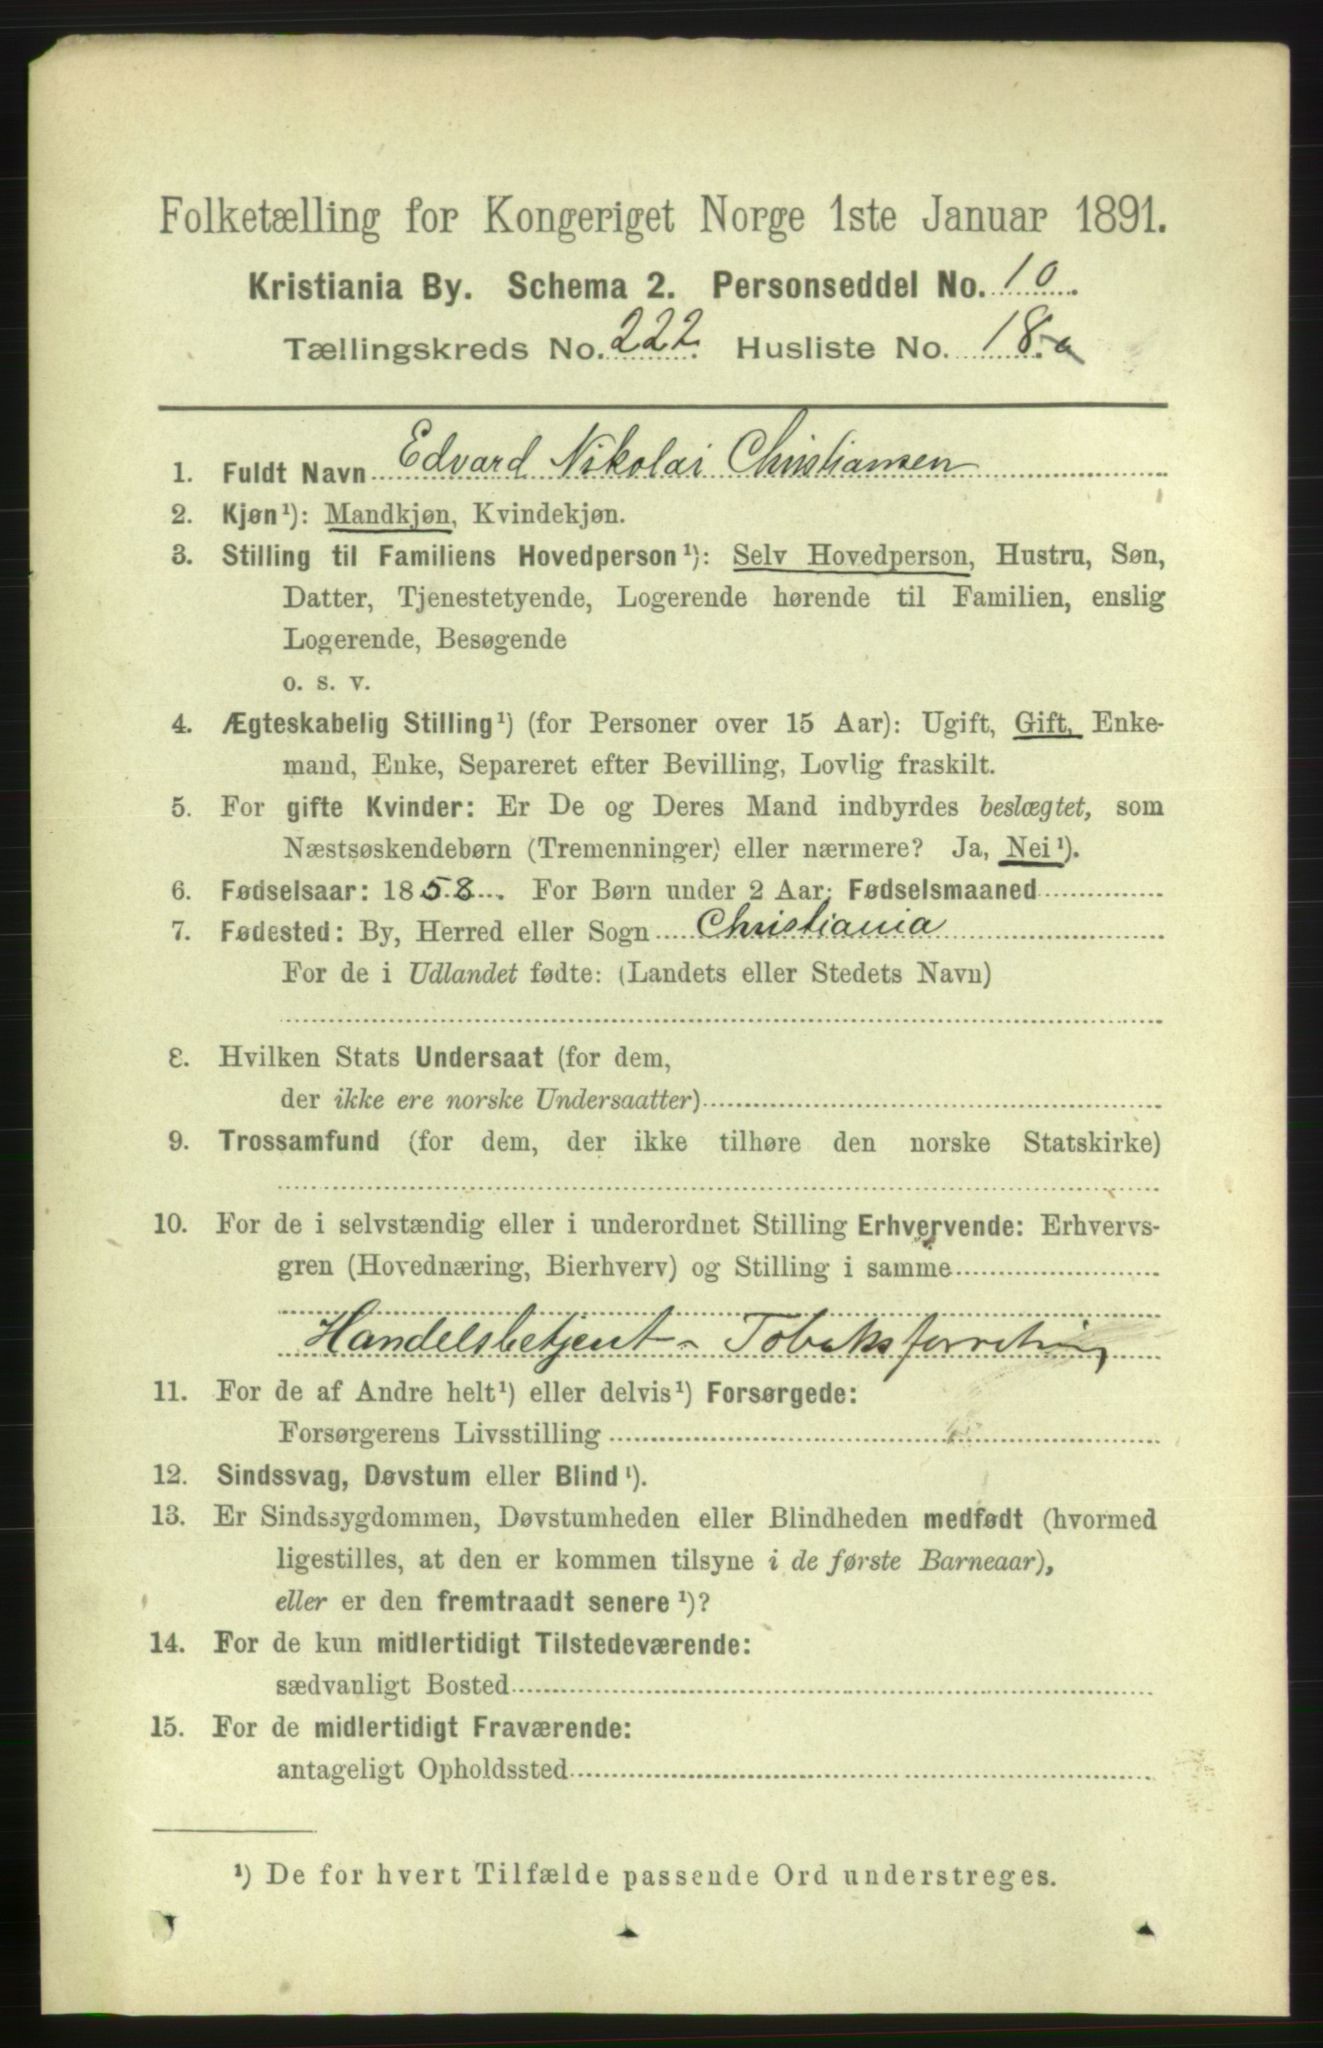 Folketælling for Kongeriget Norge 1ste Januar 1891.
Kristiania By. Schema 2. Personseddel No. 10
Tællingskreds No. 222. Husliste No. 18.a
1. Fuldt Navn Edvard Nikolai Christiansen
2. Kjøn¹): Mandkjøn, Kvindekjøn.
3. Stilling til Familiens Hovedperson¹): Selv Hovedperson, Hustru, Søn,
Datter, Tjenestetyende, Logerende hørende til Familien, enslig
Logerende, Besøgende
o. s. v.
4. Ægteskabelig Stilling¹) (for Personer over 15 Aar): Ugift, Gift, Enke-
mand, Enke, Separeret efter Bevilling, Lovlig fraskilt.
5. For gifte Kvinder: Er De og Deres Mand indbyrdes beslægtet, som
Næstsøskendebørn (Tremenninger) eller nærmere? Ja, Nei¹).
6. Fødselsaar: 1858. For Børn under 2 Aar: Fødselsmaaned
7. Fødested: By, Herred eller Sogn Christiania
For de i Udlandet fødte: (Landets eller Stedets Navn)
8. Hvilken Stats Undersaat (for dem,
der ikke ere norske Undersaatter)
9. Trossamfund (for dem, der ikke tilhøre den norske Statskirke)
10. For de i selvstændig eller i underordnet Stilling Erhvervende: Erhvervs-
gren (Hovednæring, Bierhverv) og Stilling i samme
Handelsbetjent - Tobaksforretning
11. For de af Andre helt¹) eller delvis¹) Forsørgede:
Forsørgerens Livsstilling
12. Sindssvag, Døvstum eller Blind¹).
13. Er Sindssygdommen, Døvstumheden eller Blindheden medfødt (hvormed
ligestilles, at den er kommen tilsyne i de første Barneaar),
eller er den fremtraadt senere¹)?
14. For de kun midlertidigt Tilstedeværende:
sædvanligt Bosted
15. For de midlertidigt Fraværende:
antageligt Opholdssted
¹) De for hvert Tilfælde passende Ord understreges.